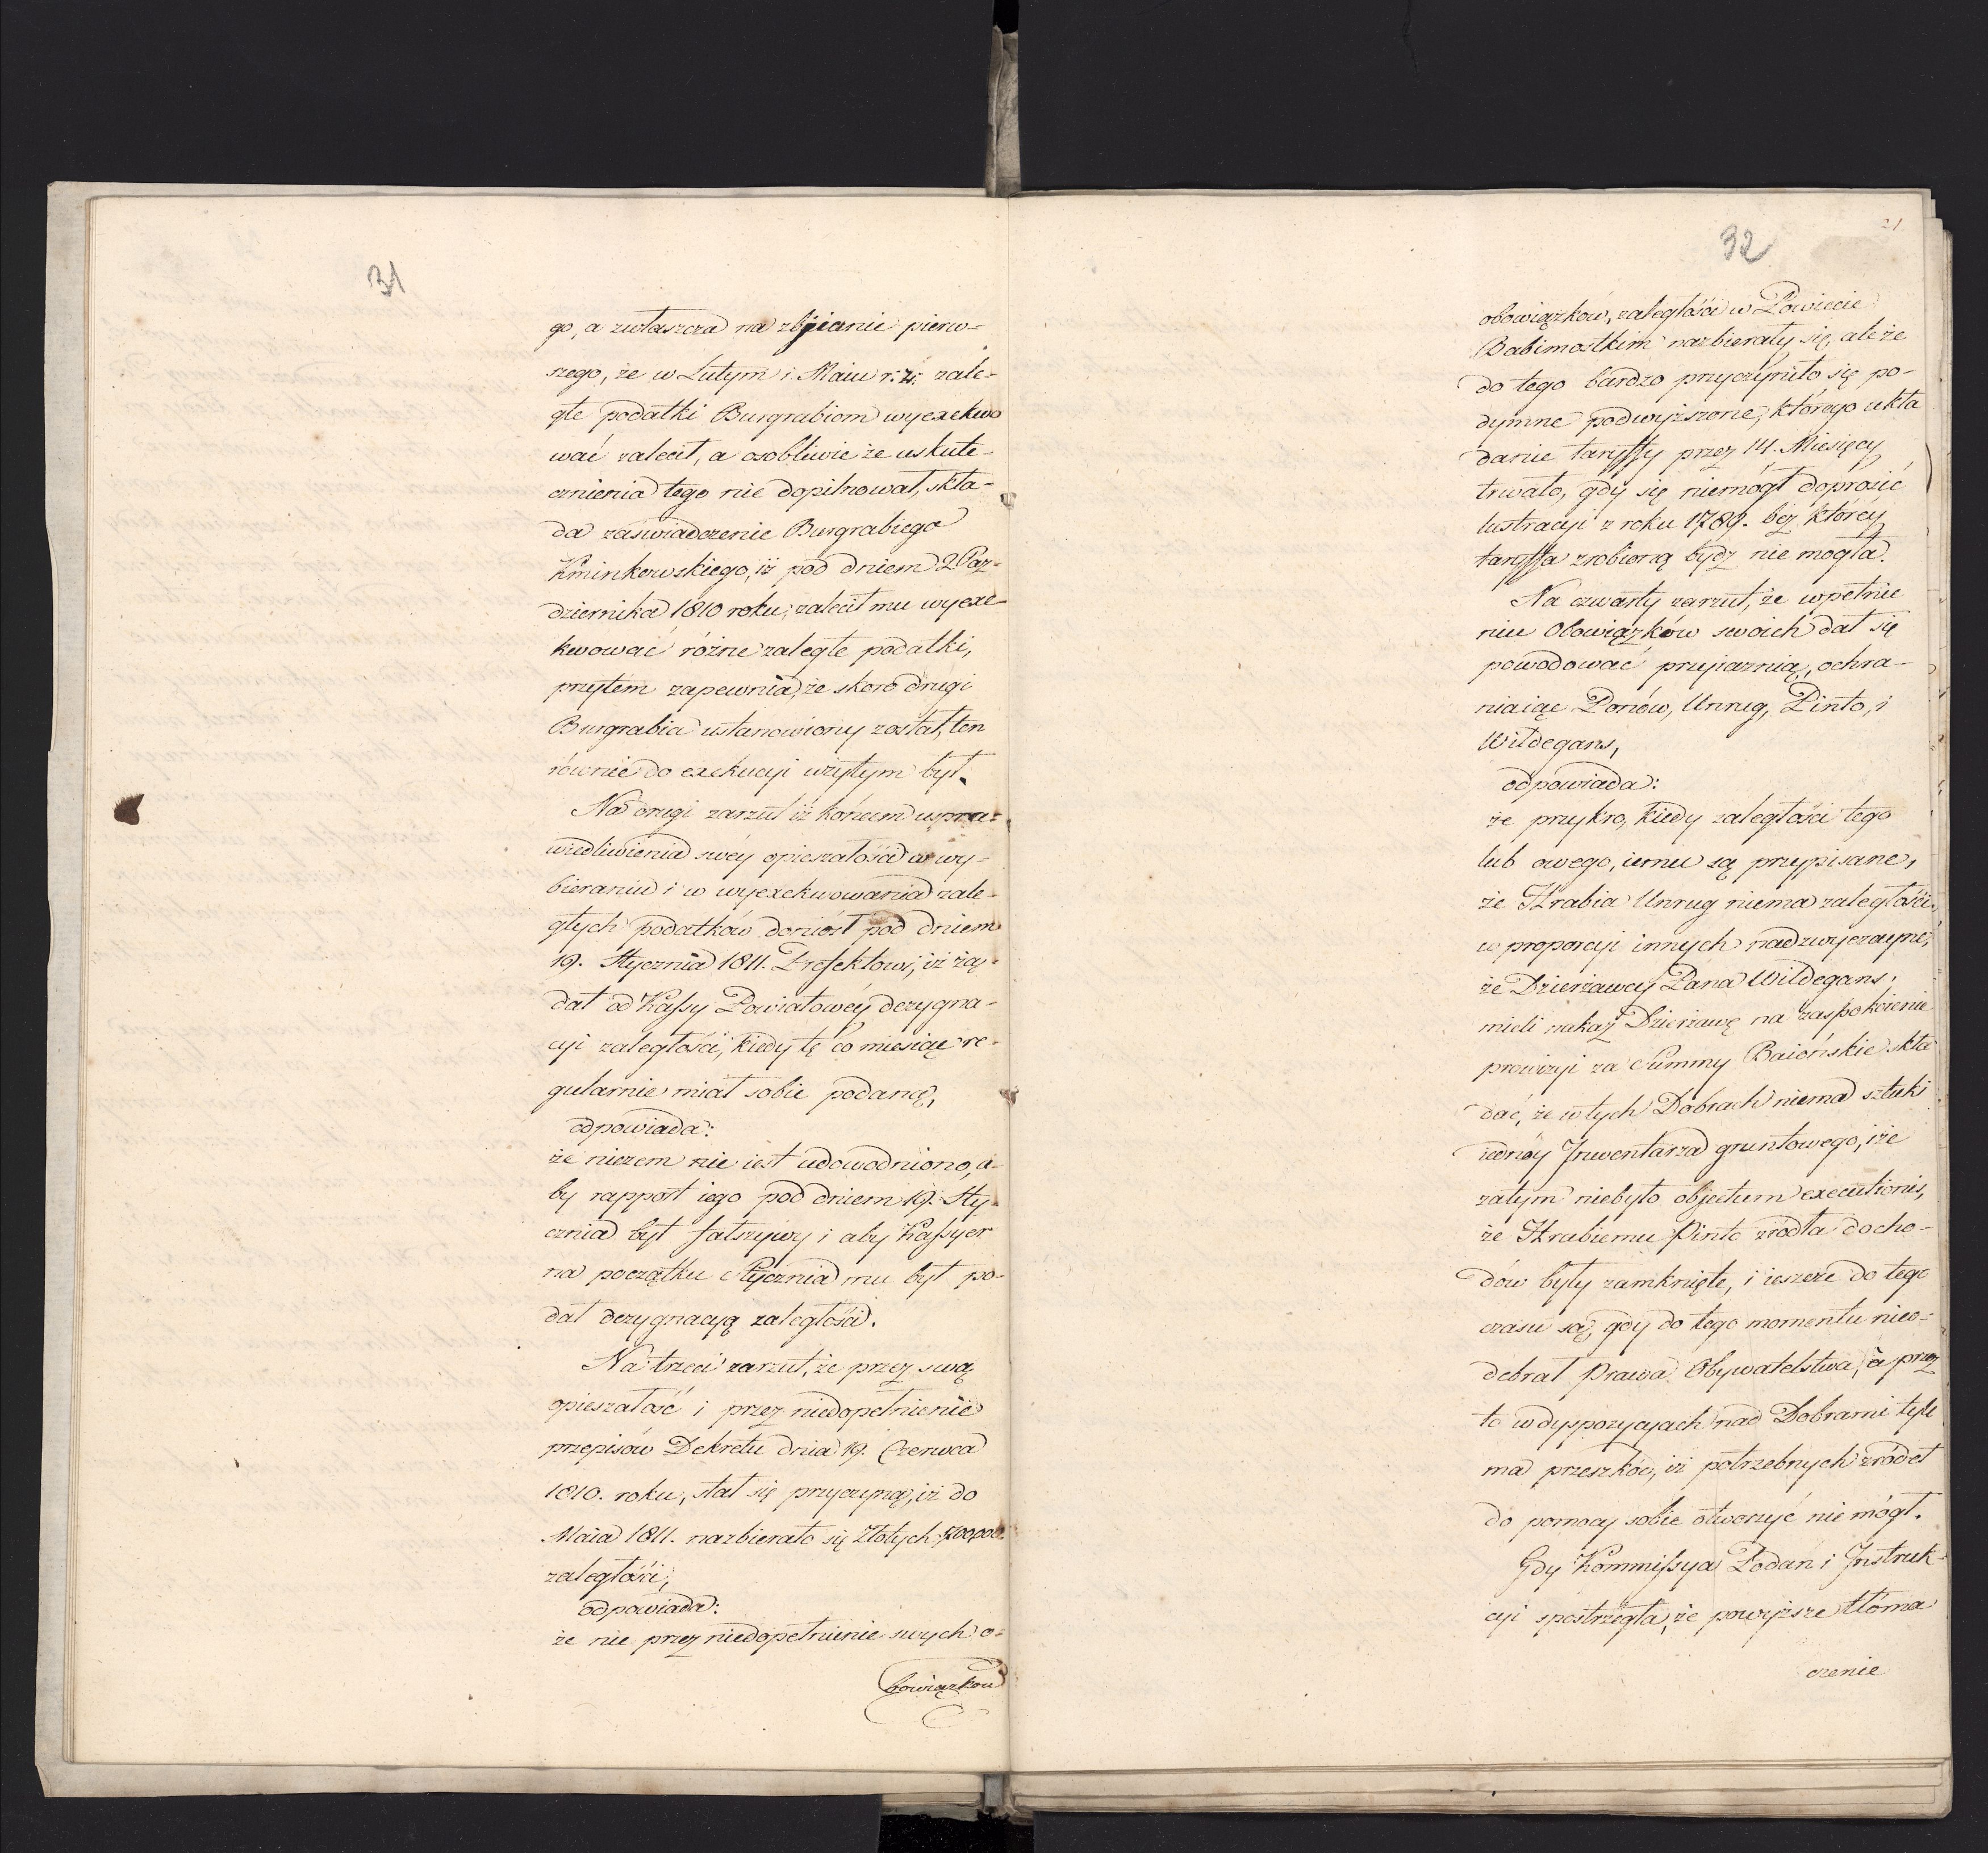 31
go, a zwłaszcza na zbijanie pierw-
szego, że w Lutym i Maiu r: z: zale-
głe podatki Burgrabiom wyexekwo
wać zalecił, a osobliwie że uskute-
cznienia tego nie dopilnował, skła-
da zaświadczenie Burgrabiego
Kminkowskiego, iż pod dniem 2 Paz-
dziernika 1810 roku, zalecił mu wyexe-
kwować różne zaległe podatki,
przytem zapewnia, że skoro drugi
Burgrabia ustanowiony został, ten
równie do exekucyi użytym był.
Na drugi zarzut iż końcem uspra-
wiedliwienia swéy opieszałości w wy-
bieraniu i w wyexekwowania zale-
głych podatków doniósł pod dniem
19. Stycznia 1811. Prefektowi, iż żą-
dał od Kassy Powiatowéy dezygna-
cyi zaległości, kiedy tę co miesiąc re-
gularnie miał sobie podaną,
odpowiada:
że niczem nie iest udowodniono, a-
by rapport iego pod dniem 19. Sty-
cznia był fałszywy i aby Kassyer
na początku Stycznia mu był po-
dał dezygnacyą zaległości.
Na trzeci zarzut, że przez swą
opieszałość i przez niedopełnienie
przepisów Dekretu dnia 19. Czerwca
1810. roku, stał się przyczyną, iż do
Maia 1811. nazbierało się Złotych 500,000
zaległości,
odpowiada:
że nie przez niedopełnienie swych o-
bowiązków
21
32
obowiązków, zaległości w Powiecie
Babimostkim nazbierały się, ale że
do tego bardzo przyczyniło się po-
dymne podwyższone, którego ukła
danie taryffy przez 14. Miesięcy
trwało, gdy się niemógł doprosić
lustracyi z roku 1789. bez którey
taryffa zrobioną bydź nie mogła.
Na czwarty zarzut, że wpełnie
niu Obowiązków swoich dał się
powodować przyiaznią, ochra-
niaiąc Panów, Unrug, Pinto, i
Wildegans,
odpowiada:
że przykro, kiedy zaległości tego
lub owego, iemu są przypisane,
że Hrabia Unrug niema zaległości
w proporcyi innych nadzwyczayne,
że Dzierżawcy Pana Wildegans,
mieli nakaz Dzierżawę na zaspokoienie
prowizyi za Summy Baiońskie skła
dać, że w tych Dobrach niema sztuki
iednéy Inwentarza gruntowego, i że
zatym niebyło objectum executionis,
że Hrabiemu Pinto źrodła docho-
dów były zamknięte, i ieszcze do tego
czasu są, gdy do tego momentu nieo-
debrał Prawa Obywatelstwa, a przez
to w dyspozycyach nad Dobrami tyle
ma przeszkód, iż potrzebnych źródeł
do pomocy sobie otworzyć nie mógł.
Gdy Kommissya Podań i Instruk-
cyi spostrzegła, że powyższe tłóma
czenie